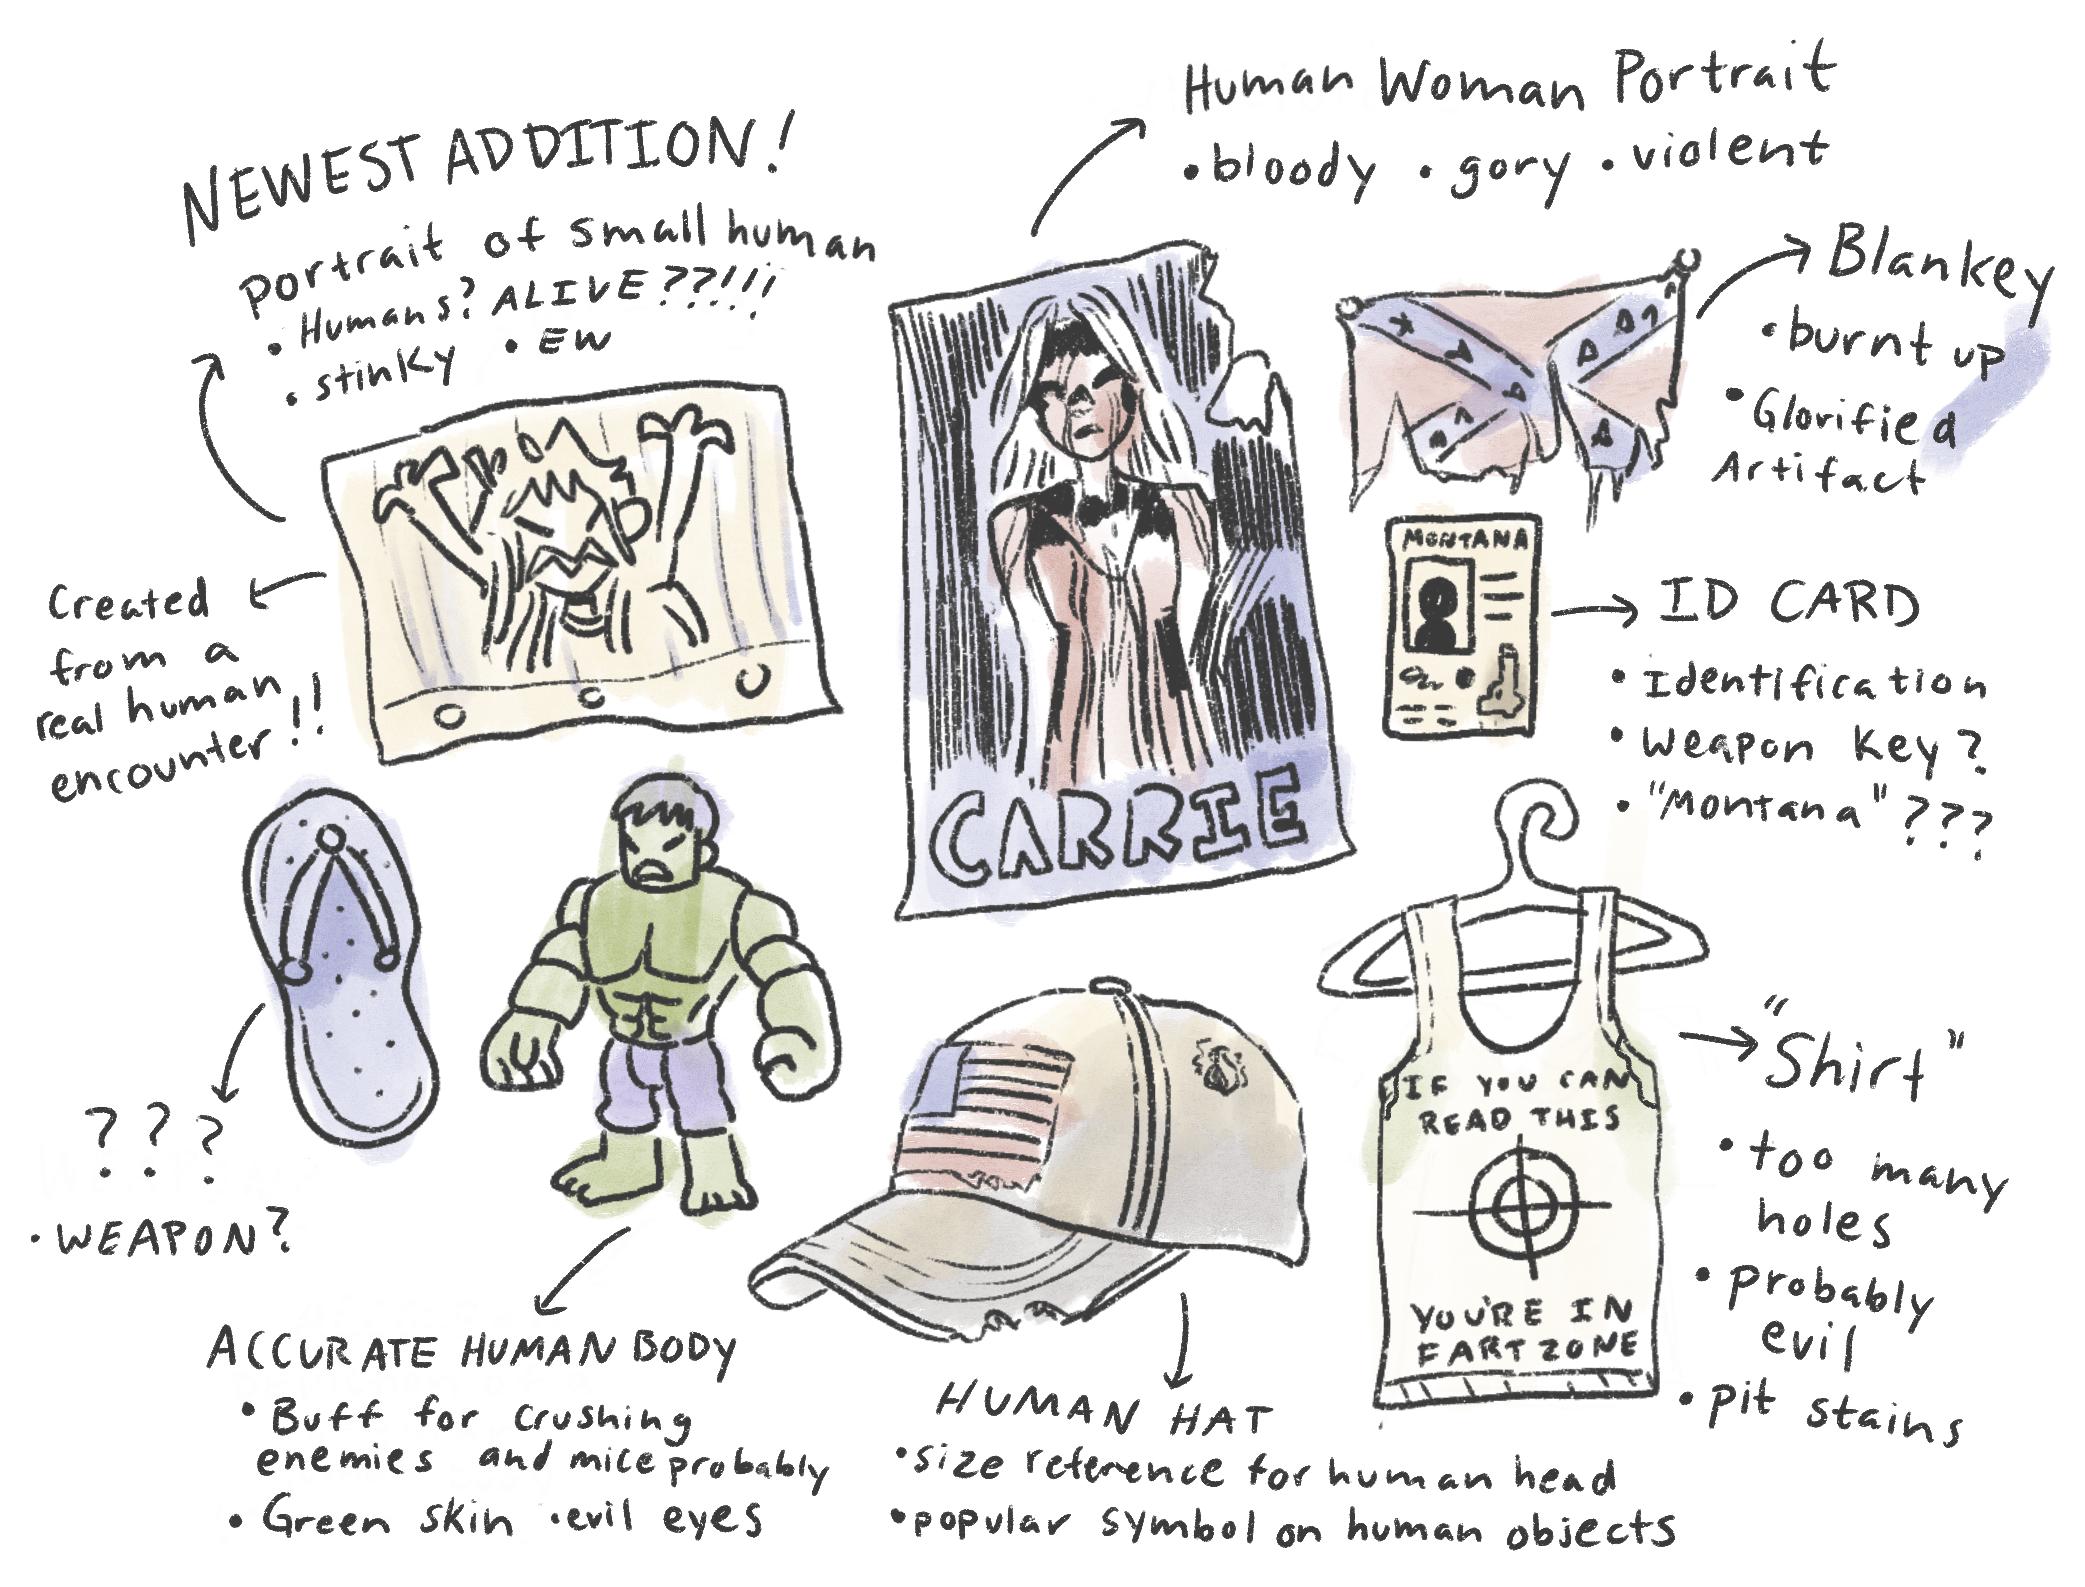 NEWEST ADDITION!
portrait of small human
• Humans? ALIVE??!!!
• stinky • EW
Created
from a
real human
encounter!!
Human Woman Portrait
• bloody • gory • violent
CARRIE
Blankey
• burnt up
• Glorified
Artifact
MONTANA
ID CARD
• Identification
• Weapon Key?
• "Montana" ???
? ? ?
• WEAPON?
ACCURATE HUMAN BODY
• Buff for crushing
enemies and mice probably
• Green skin • evil eyes
HUMAN HAT
• size reference for human head
• popular symbol on human objects
IF YOU CAN
READ THIS
YOU'RE IN
FART ZONE
"Shirt"
• too many
holes
• probably
evil
• pit stains